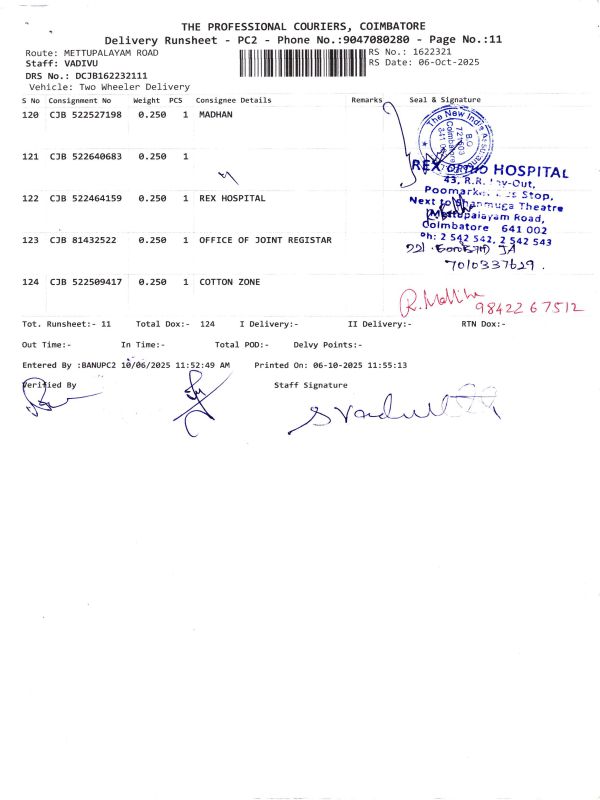 THE PROFESSIONAL COURIERS, COIMBATORE
Delivery Runsheet - PC2 - Phone No.:9047080280 - Page No.:11
Route: METTUPALAYAM ROAD RS No.: 1622321
Staff: VADIVU RS Date: 06-Oct-2025
DRS No.: DCJB162232111
Vehicle: Two Wheeler Delivery
S No Consignment No Weight PCS Consignee Details Remarks Seal & Signature
120 CJB 522527198 0.250 1 MADHAN
The New India Assurance
B.O
721603
Coimbatore
121 CJB 522640683 0.250 1
REX ORTHO HOSPITAL
43, R.R. Lay-Out,
Poomarket Bus Stop,
122 CJB 522464159 0.250 1 REX HOSPITAL
Next to Shanmuga Theatre
Mettupalayam Road,
Coimbatore 641 002
Ph: 2 542 542, 2 542 543
123 CJB 81432522 0.250 1 OFFICE OF JOINT REGISTAR
JA
7010337629.
124 CJB 522509417 0.250 1 COTTON ZONE
9842267512
Tot. Runsheet:- 11 Total Dox:- 124 I Delivery:- II Delivery:- RTN Dox:-
Out Time:- In Time:- Total POD:- Delvy Points:-
Entered By :BANUPC2 10/06/2025 11:52:49 AM Printed On: 06-10-2025 11:55:13
Verified By Staff Signature